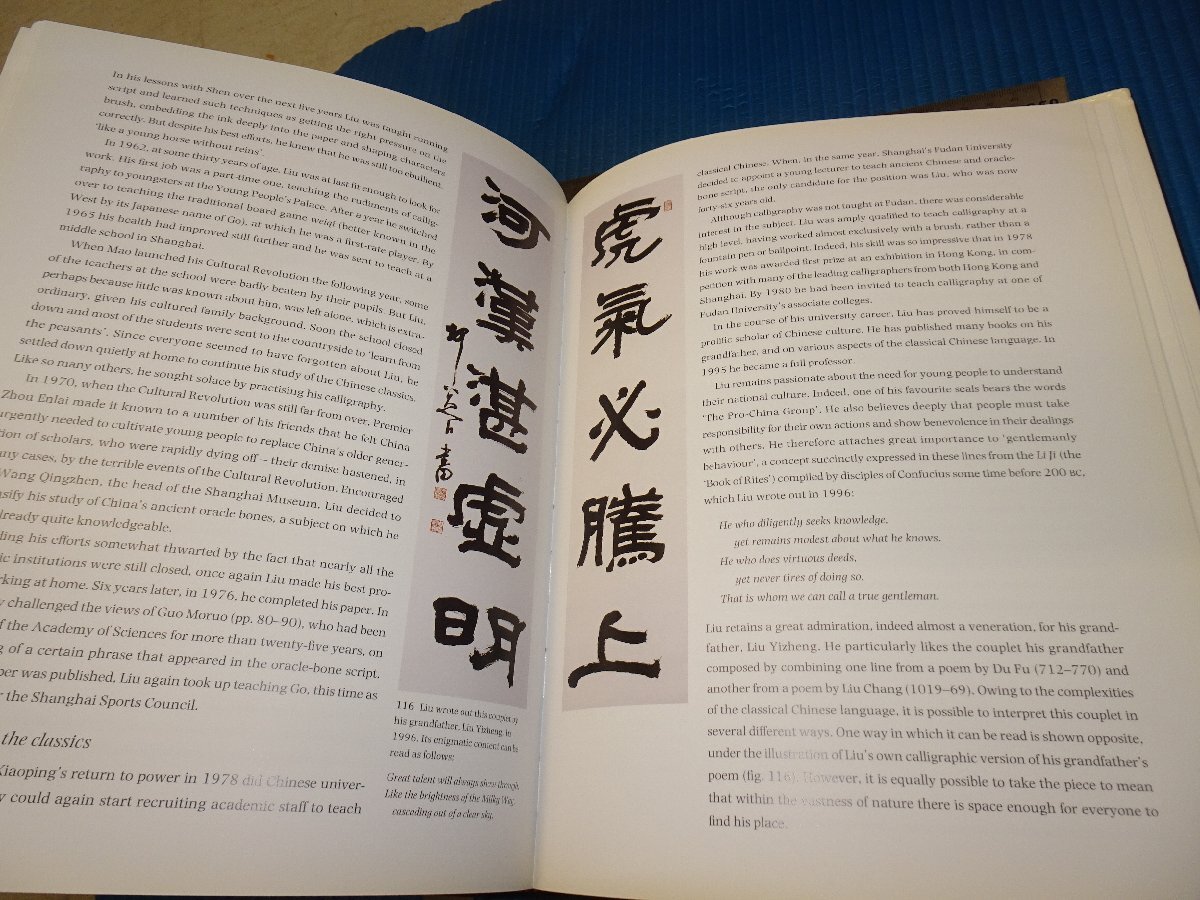 In his lessons with Shen over the next five years Liu was taught running
script and learned such techniques as getting the right pressure on the
brush, embedding the ink deeply into the paper and shaping characters
correctly. But despite his best efforts, he knew that he was still too ebullient,
'like a young horse without reins'.
In 1962, at some thirty years of age, Liu was at last fit enough to look for
work. His first job was a part-time one, teaching the rudiments of callig-
raphy to youngsters at the Young People's Palace. After a year he switched
over to teaching the traditional board game weiqi (better known in the
West by its Japanese name of Go), at which he was a first-rate player. By
1965 his health had improved still further and he was sent to teach at a
middle school in Shanghai.
When Mao launched his Cultural Revolution the following year, some
of the teachers at the school were badly beaten by their pupils. But Liu,
perhaps because little was known about him, was left alone, which is extra-
ordinary, given his cultured family background. Soon the school closed
down and most of the students were sent to the countryside to 'learn from
the peasants'. Since everyone seemed to have forgotten about Liu, he
settled down quietly at home to continue his study of the Chinese classics.
Like so many others, he sought solace by practising his calligraphy.
In 1970, when the Cultural Revolution was still far from over, Premier
Zhou Enlai made it known to a number of his friends that he felt China
urgently needed to cultivate young people to replace China's older gener-
tion of scholars, who were rapidly dying off – their demise hastened, in
any cases, by the terrible events of the Cultural Revolution. Encouraged
Wang Qingzhen, the head of the Shanghai Museum, Liu decided to
nsify his study of China's ancient oracle bones, a subject on which he
already quite knowledgeable.
ding his efforts somewhat thwarted by the fact that nearly all the
ic institutions were still closed, once again Liu made his best pro-
rking at home. Six years later, in 1976, he completed his paper. In
y challenged the views of Guo Moruo (pp. 80–90), who had been
f the Academy of Sciences for more than twenty-five years, on
g of a certain phrase that appeared in the oracle-bone script.
per was published, Liu again took up teaching Go, this time as
r the Shanghai Sports Council.
the classics
Xiaoping's return to power in 1978 did Chinese univer-
y could again start recruiting academic staff to teach
河漢湛虛明
116 Liu wrote out this couplet by
his grandfather, Liu Yizheng, in
1996. Its enigmatic content can be
read as follows:
Great talent will always show through,
Like the brightness of the Milky Way
cascading out of a clear sky.
虎氣必騰上
classical Chinese. When, in the same year, Shanghai's Fudan University
decided to appoint a young lecturer to teach ancient Chinese and oracle-
bone script, the only candidate for the position was Liu, who was now
forty-six years old.
Although calligraphy was not taught at Fudan, there was considerable
interest in the subject. Liu was amply qualified to teach calligraphy at a
high level, having worked almost exclusively with a brush, rather than a
fountain pen or ballpoint. Indeed, his skill was so impressive that in 1978
his work was awarded first prize at an exhibition in Hong Kong, in com-
petition with many of the leading calligraphers from both Hong Kong and
Shanghai. By 1980 he had been invited to teach calligraphy at one of
Fudan University's associate colleges.
In the course of his university career, Liu has proved himself to be a
prolific scholar of Chinese culture. He has published many books on his
grandfather, and on various aspects of the classical Chinese language. In
1995 he became a full professor.
Liu remains passionate about the need for young people to understand
their national culture. Indeed, one of his favourite seals bears the words
'The Pro-China Group'. He also believes deeply that people must take
responsibility for their own actions and show benevolence in their dealings
with others. He therefore attaches great importance to 'gentlemanly
behaviour', a concept succinctly expressed in these lines from the Li Ji (the
'Book of Rites') compiled by disciples of Confucius some time before 200 BC,
which Liu wrote out in 1996:
He who diligently seeks knowledge,
yet remains modest about what he knows.
He who does virtuous deeds,
yet never tires of doing so.
That is whom we can call a true gentleman.
Liu retains a great admiration, indeed almost a veneration, for his grand-
father, Liu Yizheng. He particularly likes the couplet his grandfather
composed by combining one line from a poem by Du Fu (712–770) and
another from a poem by Liu Chang (1019–69). Owing to the complexities
of the classical Chinese language, it is possible to interpret this couplet in
several different ways. One way in which it can be read is shown opposite,
under the illustration of Liu's own calligraphic version of his grandfather's
poem (fig. 116). However, it is equally possible to take the piece to mean
that within the vastness of nature there is space enough for everyone to
find his place.